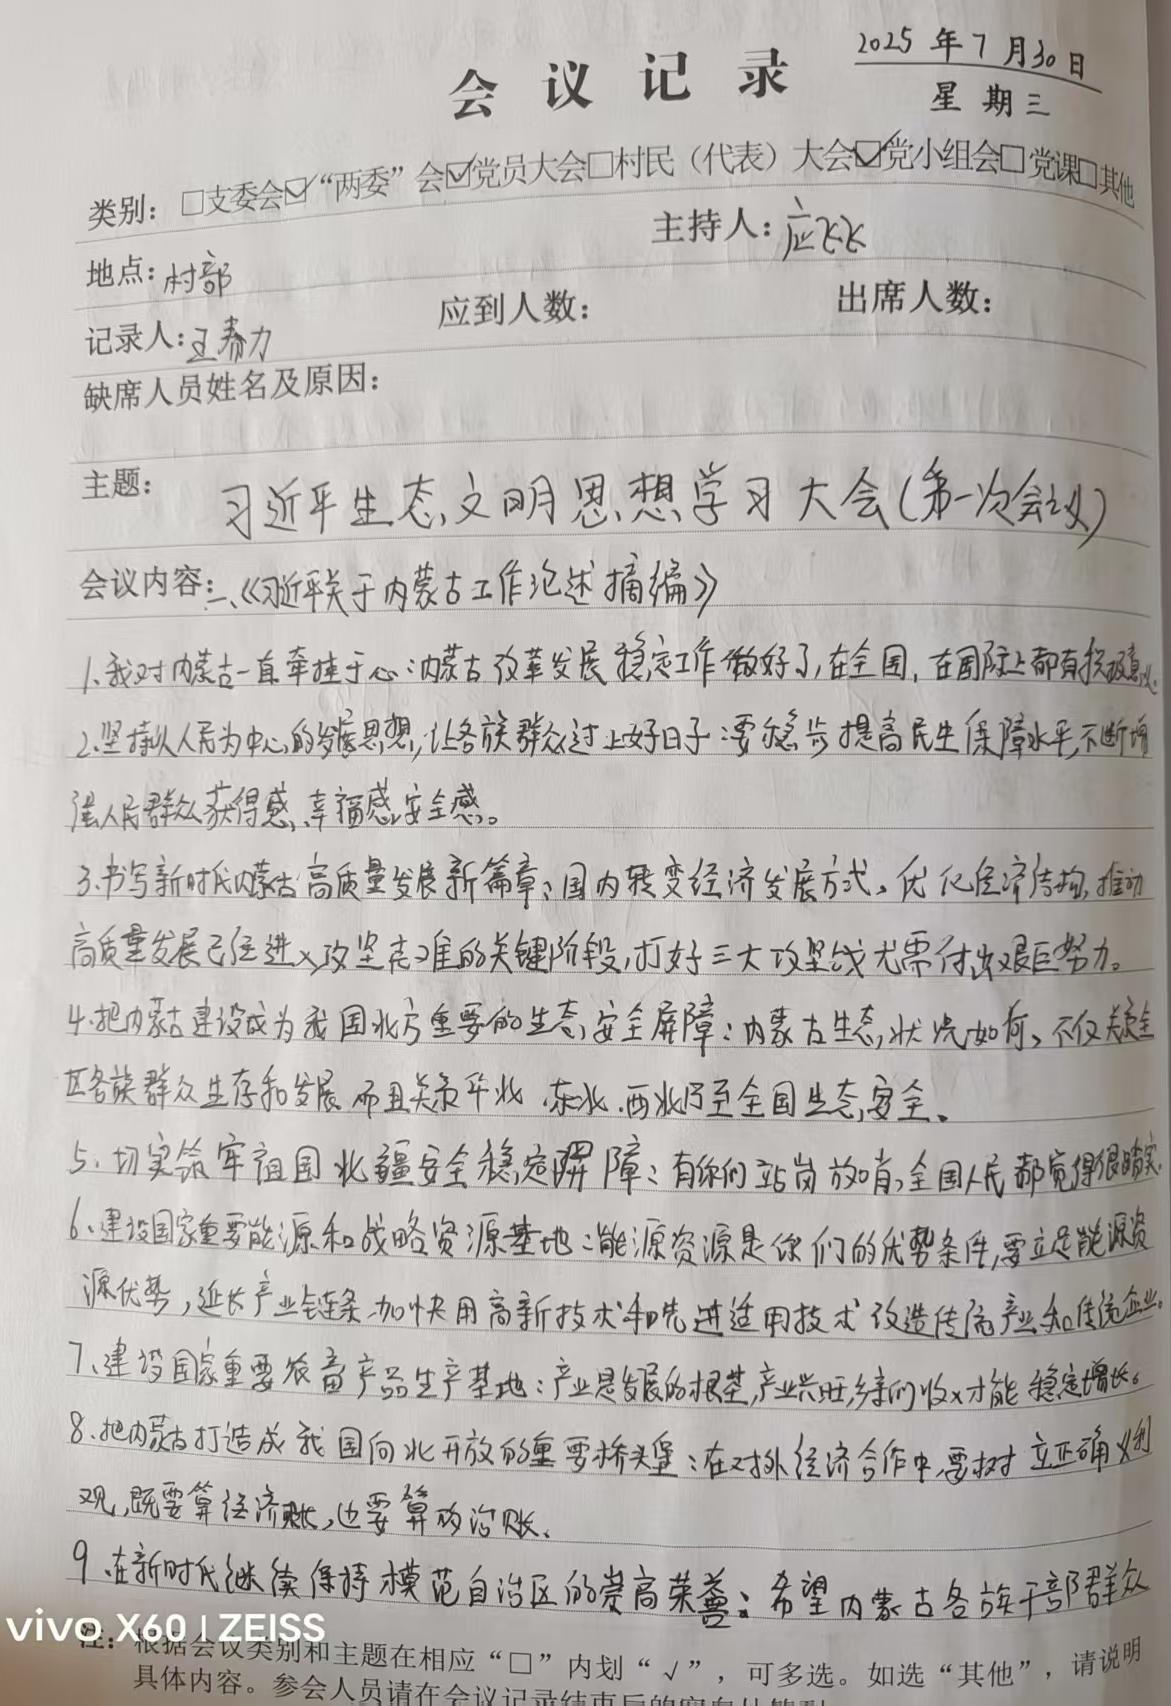 2025年7月30日
会议记录
星期三
类别：□支委会☑“两委”会☑党员大会□村民（代表）大会☑党小组会□党课□其他
主持人：应飞飞
地点：村部
应到人数： 出席人数：
记录人：王春力
缺席人员姓名及原因：
主题：习近平生态文明思想学习大会（第一次会议）
会议内容：一、《习近平关于内蒙古工作论述摘编》
1、我对内蒙古一直牵挂于心：内蒙古改革发展稳定工作做好了，在全国，在国际上都有积极意义。
2、坚持以人民为中心的发展思想，让各族群众过上好日子：要稳步提高民生保障水平，不断增
强人民群众获得感、幸福感、安全感。
3、书写新时代内蒙古高质量发展新篇章：国内转变经济发展方式、优化经济结构，推动
高质量发展已经进入攻坚克难的关键阶段，打好三大攻坚战尤需付出艰巨努力。
4、把内蒙古建设成为我国北方重要的生态安全屏障：内蒙古生态状况如何，不仅关系全
区各族群众生存和发展 而且关系华北、东北、西北乃至全国生态安全。
5、切实筑牢祖国北疆安全稳定屏障：有你们站岗放哨，全国人民都觉得很踏实。
6、建设国家重要能源和战略资源基地：能源资源是你们的优势条件，要立足能源资
源优势，延长产业链条 加快用高新技术和先进适用技术改造传统产业和传统企业。
7、建设国家重要农畜产品生产基地：产业是发展的根基，产业兴旺，乡亲们收入才能稳定增长。
8、把内蒙古打造成我国向北开放的重要桥头堡：在对外经济合作中，要树立正确义利
观，既要算经济账，也要算政治账。
9、在新时代继续保持模范自治区的崇高荣誉：希望内蒙古各族干部群众
vivo X60 | ZEISS
注：根据会议类别和主题在相应“□”内划“√”，可多选。如选“其他”，请说明
具体内容。参会人员请在会议记录结束后的